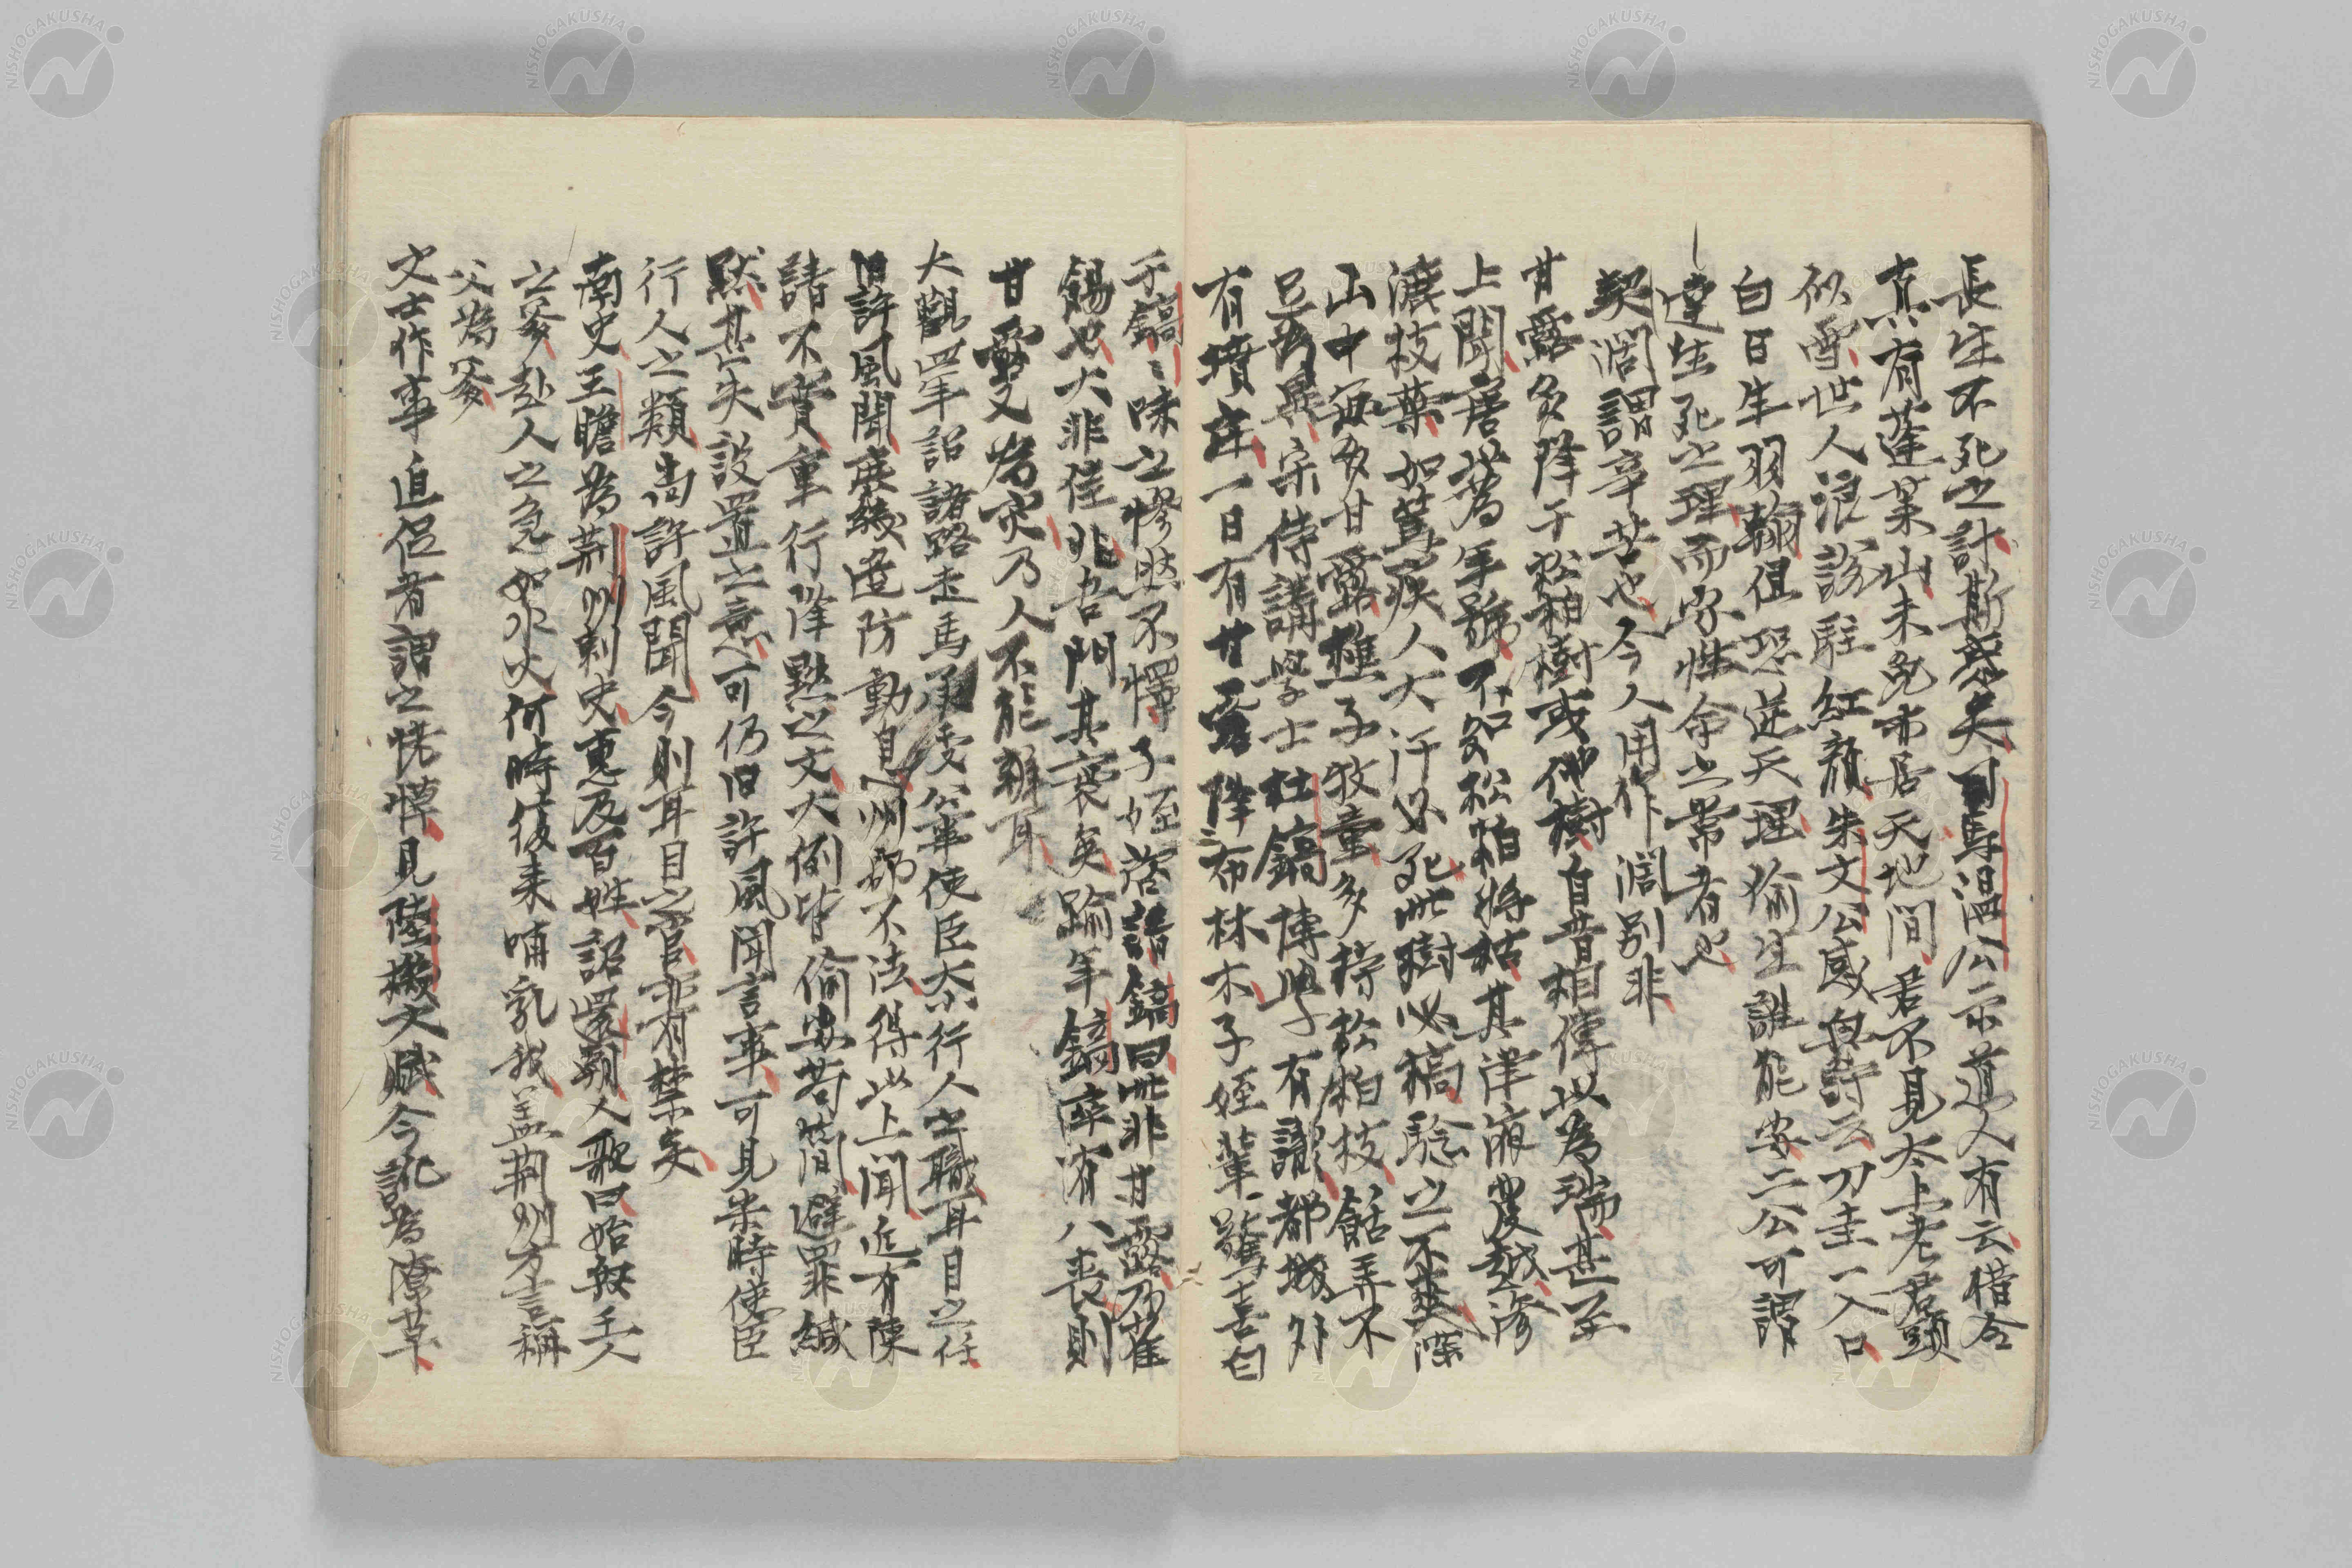 長生不死之計斯惑矣司馬温公示道人有云借令
真有蓬莱山未免亦居天地間君不見太上老君頭
似雪世人浪説駐紅顔朱文公感興詩云刀圭一入口
白日生羽翰但恐逆天理偷生誰能安二公可謂
達生死之理而安性命之常者也
契濶謂辛苦也今人用作濶別非
甘露多降于松柏樹或他樹自昔相傳以為瑞甚至
上聞唐以為年號不知松柏將枯其津液度越滲
漉枝葉如篤疾人大汗必死此樹必槁驗之不爽深
山中每多甘露樵子牧童多捋松柏枝餂弄不
異宋侍講學士杜鎬博學有識都城外
有墳庄一日有甘露降布林木子姪輩驚喜白
于鎬鎬味之慘然不懌子姪啓請鎬曰此非甘露乃雀
餳也大非佳兆吾門其衰矣踰年鎬卒有八喪則
甘露又為灾乃人不能辨耳
大觀四年詔諸路走馬承受公事使臣大小行人之職耳目之任
旧許風聞廉察邊防動息州郡不法得以上聞近有陳
請不實重行降黜之文大例皆偷安苟簡避罪緘
黙甚失設置之意可仍旧許風聞言事可見宋時使臣
行人之類尚許風聞今則耳目之官亦有禁矣
南史王瞻為荆州刺史惠及百姓詔還朝人歌曰始興王人
之爹赴人之急如水火何時復来哺乳我盖荆州方言称
父為爹
文士作事迫促者謂之恅愺見陸機文賦今訛為潦草